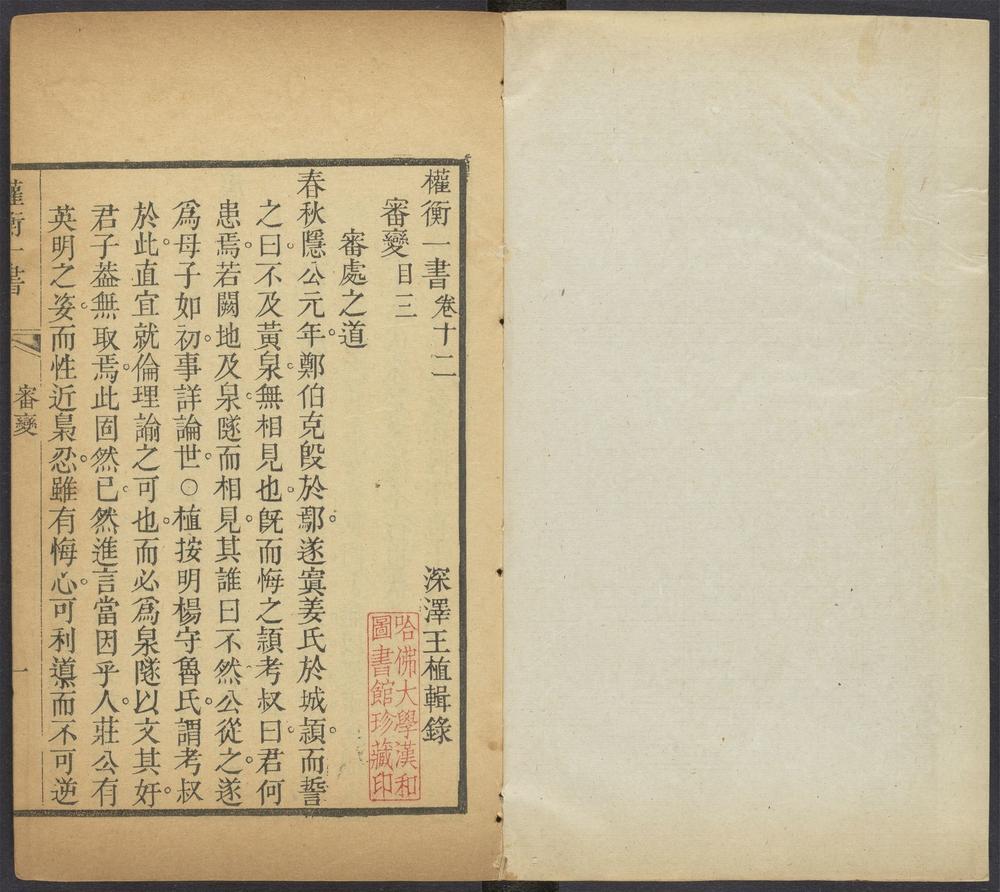 權衡一書卷十二
深澤王植輯錄
審變目三
審處之道
春秋隱公元年。鄭伯克段於鄢。遂寘姜氏於城潁。而誓
之曰。不及黃泉。無相見也。旣而悔之。潁考叔曰。君何
患焉。若闕地及泉。隧而相見。其誰曰不然。公從之。遂
爲母子如初。事詳論世。○植按明楊守魯氏。謂考叔
於此。直宜就倫理諭之可也。而必爲泉隧以文其奸。
君子葢無取焉。此固然已。然進言當因乎人。莊公有
英明之姿。而性近梟忍。雖有悔心。可利導而不可逆
權衡一書
審變
一
哈佛大學漢和
圖書館珍藏印